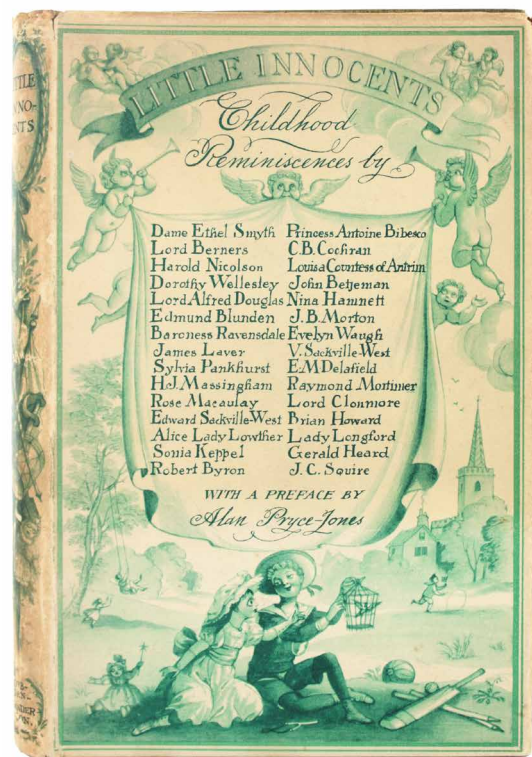 LITTLE INNOCENTS
Childhood
Reminiscences by
Dame Ethel Smyth
Lord Berners
Harold Nicolson
Dorothy Wellesley
Lord Alfred Douglas
Edmund Blunden
Baroness Ravensdale
James Laver
Sylvia Pankhurst
H.J. Massingham
Rose Macaulay
Edward Sackville-West
Alice Lady Lowther
Sonia Keppel
Robert Byron
Princess Antoine Bibesco
C.B. Cochran
Louisa Countess of Antrim
John Betjeman
Nina Hamnett
J.B. Morton
Evelyn Waugh
V. Sackville-West
E.M Delafield
Raymond Mortimer
Lord Clonmore
Brian Howard
Lady Longford
Gerald Heard
J.C. Squire
WITH A PREFACE BY
Alan Pryce-Jones